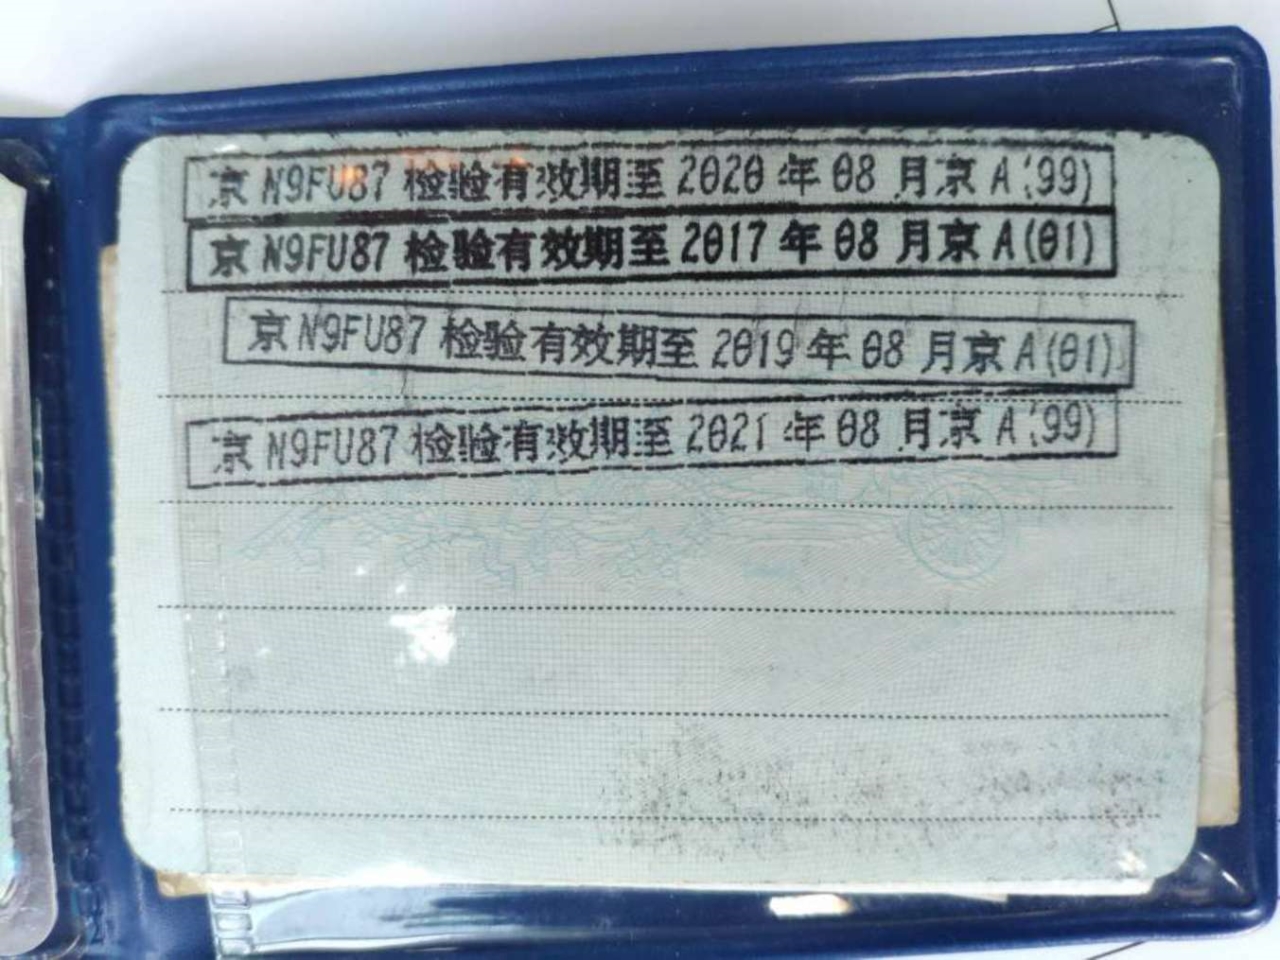 京N9FU87检验有效期至2020年08月京A(99)
京N9FU87检验有效期至2017年08月京A(01)
京N9FU87检验有效期至2019年08月京A(01)
京N9FU87检验有效期至2021年08月京A(99)